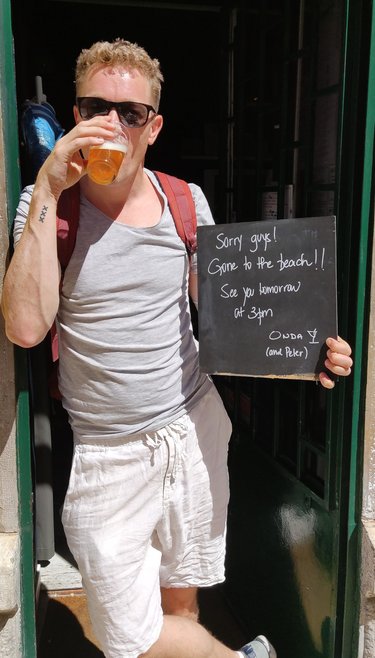 xxx
Sorry guys!
Gone to the beach!!
See you tomorrow
at 3pm
ONDA
(and Peter)